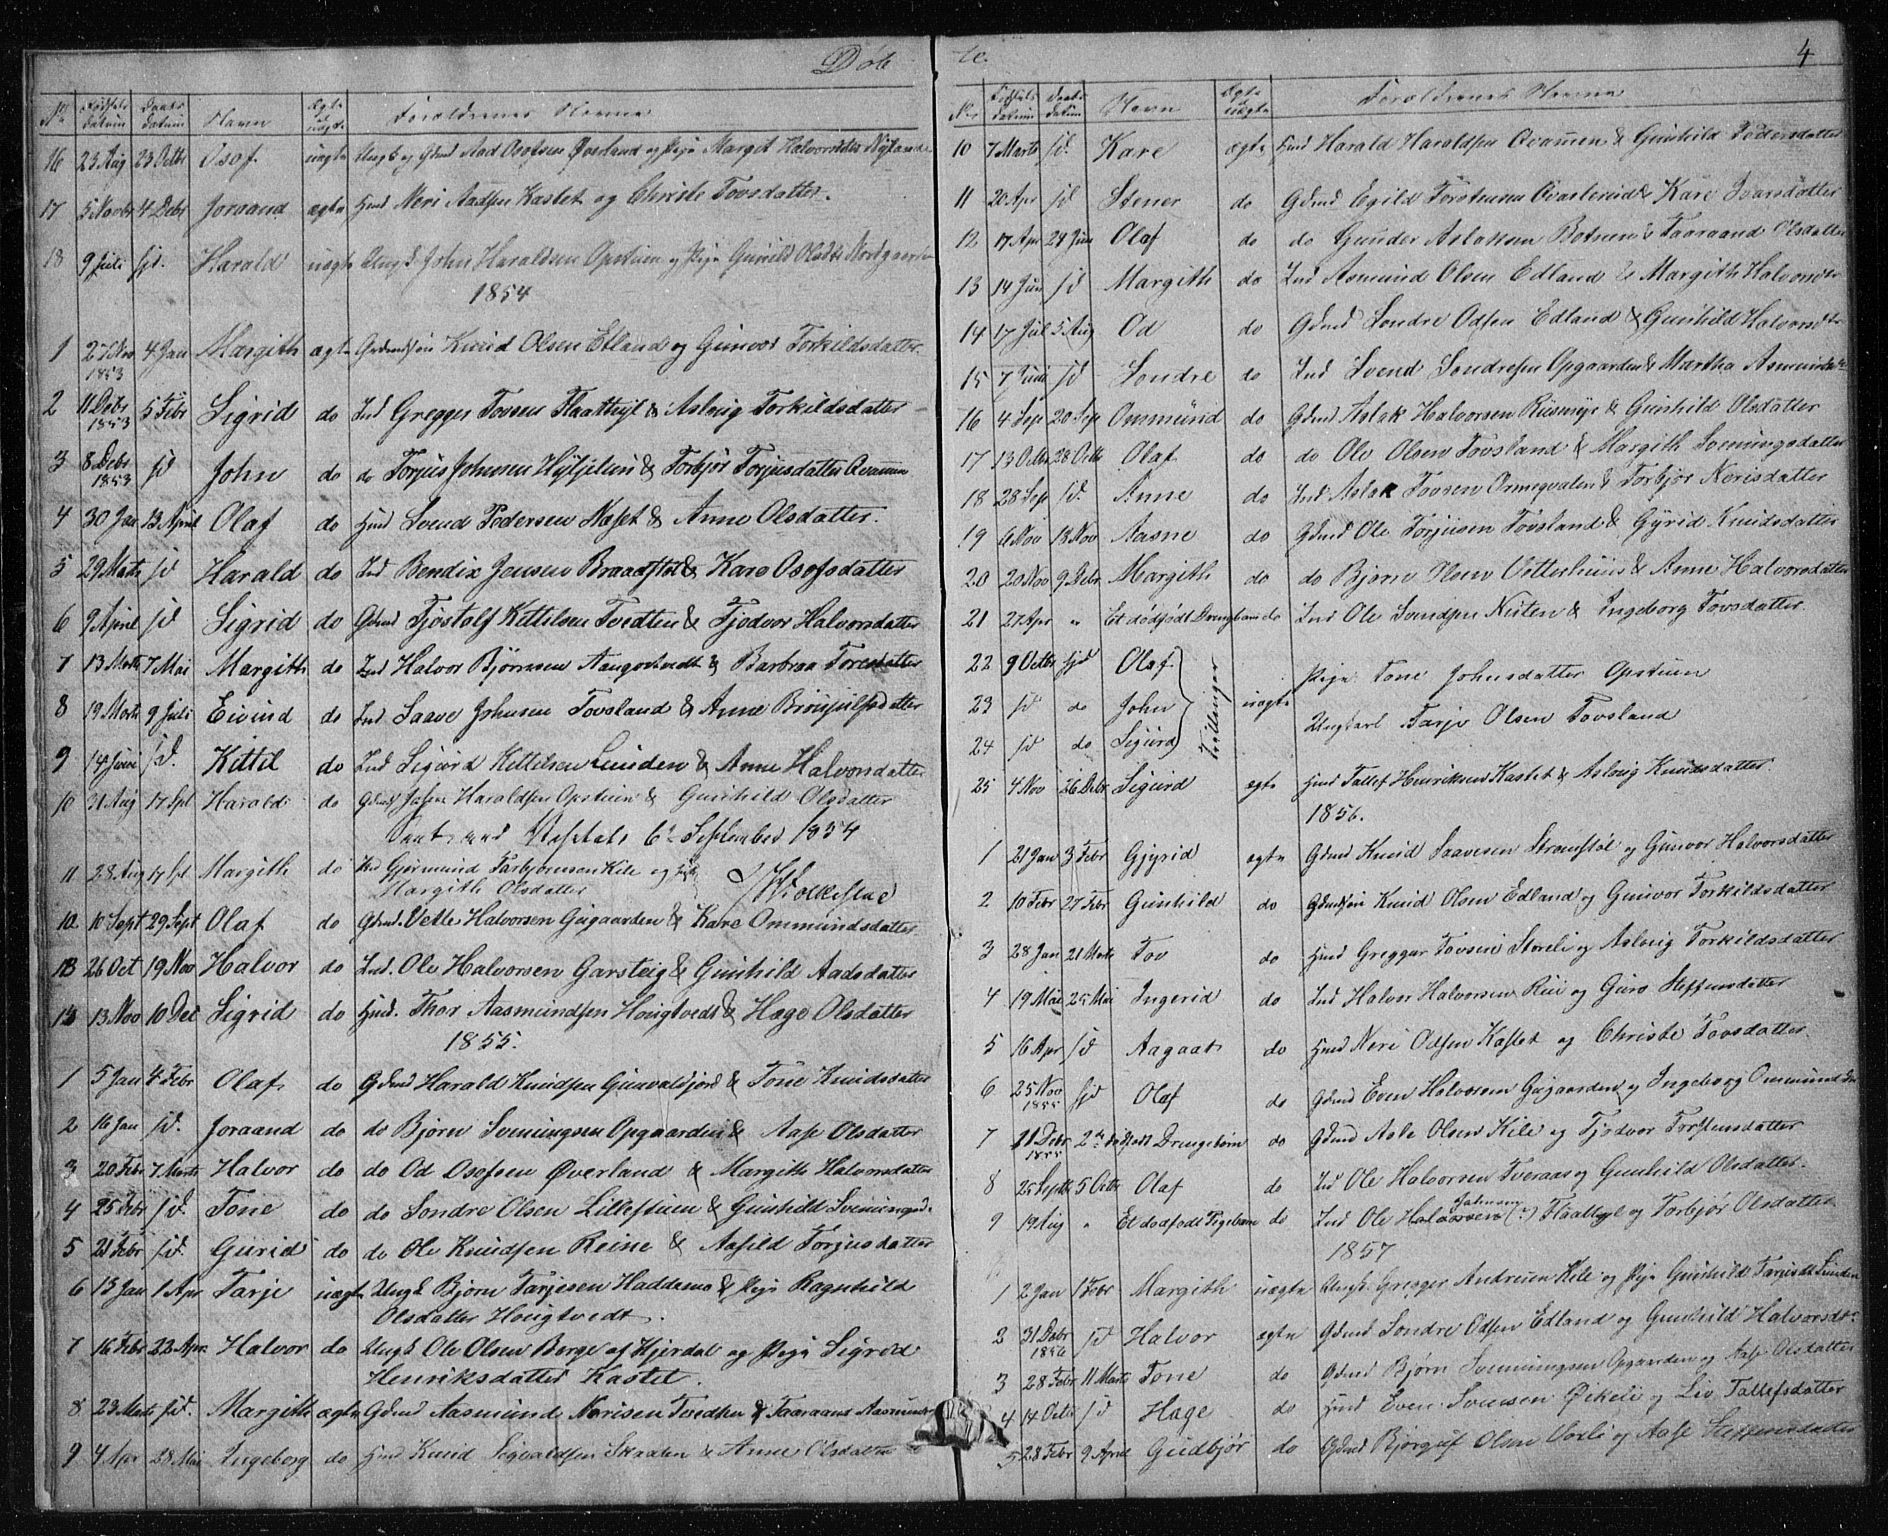 Døb
No Fødsels datum Daabs datum Navn Ægte el uægte Forældrenes Navne
16 23 Aug 23 Octbr Osof uægte Ungk og Gbmd Aad Osofsen Øverland og Pige Margit Halvorsdtr Nyland
17 5 Novbr 4 Debr Joraand ægte Hmd Neri Aadsen Kastet og Christe Tovsdatter.
18 9 Juli sjd. Harald uægte Ungk. John Haraldsen Opstuen og Pige Gunild Olsdtr Nordgaarden
1854
1 25 Nov 1853 4 Jan Margith ægte Gbrmdssøn Knud Olsen Edland og Gunvor Torkildsdatter
2 11 Debr 1853 5 Febr Sigrid do Ind Gregger Tovsen Flaathyl & Asloug Torkildsdatter
3 8 Debr 1853 sd John do do Torjus Johnsen Hyljeliui & Torbjør Torjusdatter Qvammen
4 30 Jan 13 April Olaf do Hmd Svend Pedersen Næset & Anne Olsdatter.
5 29 Marts sd Harald do Ind Bendix Jensen Braadstøl & Kare Osofsdatter
6 9 April sd Sigrid do Gbmd Tjøstolf Kittilsen Tvedten & Tjodvor Halvorsdatter
7 13 Marts 7 Mai Margith do Ind Halvor Bjørnsen Aangardstvedt & Barbraa Toresdatter
8 19 Marts 9 Juli Eivind do Ind Saave Johnsen Tovsland & Anne Brynjulfsdatter
9 14 Juni sd. Kittil do Ind Sigurd Kittilsen Lunden & Anne Halvorsdatter
10 31 Aug 17 Spt Harald do Gbmd John Haraldsen Opstuen & Gunhild Olsdatter
6te September 1854
11 28 Aug 17 spt Margith do Gjermund Tarbjørnsen Kile og Pige
Margith Olsdatter
12 10 Sept 29 Sept Olaf do Gbmd. Vetle Halvorsen Gugaarden & Kare Ommundsdatter
13 26 Oct 19 Nov Halvor do Ind. Ole Halvorsen Garsteig & Gunhild Aadsdatter
14 13 Nov 10 Dec Sigrid do Hmd. Thor Aasmundsen Hougtvedt & Hæge Olsdatter
1855.
1 5 Jan 4 Febr Olaf do Gbmd Harald Knudsen Gunvaldjord & Tone Knudsdatter
2 16 Jan sd. Joraand do do Bjørn Svenungsen Opgaarden & Aase Olsdatter
3 20 Febr 7 Marts Halvor do do Od Osofsen Øverland & Margith Halvorsdatter
4 25 Febr sd. Tone do do Sondre Olsen Lillestuen & Gunhild Svenungsd.
5 21 Febr sd. Gurid do do Ole Knudsen Reine & Aasild Torjusdatter
6 15 Jan 1 Apr Tarje uægte Ungk Bjørn Tarjesen Haddemo & Pige Ragnhild
Olsdatter Hougtvedt.
7 16 Febr 22 Apr Halvor do Ungk Ole Olsen Berge af Hjerdal og Pige Sigrid
Henriksdatter Kastet.
8 23 Marts sd. Margith ægte Gbmd Aasmund Nerisen Tvedten & Taaraand Aasmunds
9 4 Apr 28 Mai Ingeborg do Hmd Knud Sigvaldsen Straaten & Anne Olsdatter
te. 4
No Fødsels datum Daabs datum Navn Ægte el uægte Forældrenes Navne
10 7 Marts sd. Kare ægte Hmd Harald Haraldsen Qvamen & Gunhild Pedersdatter
11 20 Apr sd Stener do Gbmd Egild Torstensen Øvasleruid & Kare Ivarsdatter
12 17 Apr 24 Juni Olaf do do Gunder Aslaksen Botnen & Taaraand Olsdatter
13 14 Juni sd Margith do Ind Asmund Olsen Edland & Margith Halvorsdtr
14 17 Jul 5 Aug Od do Gbmd Sondre Odsen Edland & Gunhild Halvorsdtr
15 7 Juni sd Sondre do Ind Svend Sondresen Opgaarden & Martha Asmundsdtr
16 4 Sep 20 Sep Ommund do Gbmd Aslak Halvorsen Rusmyr & Gunhild Olsdatter
17 13 Octbr 28 Octb Olaf do do Ole Olsen Tovsland & Margith Svenungsdatter
18 28 Sep sd. Anne do Ind Aslak Tovsen Ormeqvalen & Torbjør Nerisdatter
19 6 Nov 18 Nov Aasne do Gbmd Ole Torjusen Tovsland & Gyrid Knudsdatter
20 20 Nov 9 Debr Margith do do Bjørn Olsen Vetterhuus & Anne Halvorsdatter
21 27 Apr " Et dødfødt Drengebarn do Ind Ole Svendsen Nisten & Ingeborg Tovsdatter
22 9 Octbr sjd Olaf
23 sd do John Trillinger uægte Pige Tone Johnsdatter Opstuen
24 sd do Sigurd Ungkarl Tarje Olsen Tovsland
25 4 Nov 26 Debr Sigurd ægte Hmd Tallef Henriksen Kastet & Aslaug Knudsdatter
1856.
1 21 Jan 3 Febr Gjyrid ægte Gbmd Knud Saavesen Strømstøl og Gunvor Halvorsdatter
2 10 Febr 27 Febr Gunhild do Gbmdssøn Knud Olsen Edland og Gunvor Torkildsdatter
3 28 Jan 21 Marts Tov do Hmd Greggar Tovsen Storeli og Aslaug Torkildsdatter
4 19 Mai 25 Mai Ingerid do Ind Halvor Halvorsen Rui og Guro Steffensdatter
5 16 Apr sd Aagaat do Hmd Neri Odsen Kastet og Christe Tovsdatter
6 25 Nov 1855 sjd Olaf do Gbmd Even Halvorsen Gugaarden og Ingeborg Ommundsdtr
7 11 Debr 1855 2de dødfødt Drengebørn do Gbmd Asle Olsen Kile og Tjodvor Torstensdatter
8 25 Septb 5 Octbr Olaf do Ind Ole Halvorsen Tveraas og Gunhild Olsdatter
9 19 Aug " Et dødfødt Pigebarn do Ind Ole Halvorsen Johnsen (?) Flaathyl og Torbjør Olsdatter
1857
1 2 Jan 1 Febr Margith uægte Ungk. Gregger Andersen Kile og Pige Gunhild Tarjesdtr Lunden
2 31 Debr 1856 sd Halvor ægte Gbmd Sondre Odsen Edland og Gunhild Halvorsdtr
3 28 Febr 11 Marts Tone do Gbmd Bjørn Svenungsen Opgaarden og Aase Olsdatter
4 14 Octbr sd Hæge do Hmd Even Svensen Øikeli og Liv Tallefsdatter
5 28 Febr 9 April Gudbjør do Gbmd Bjørguf Olsen Vorli og Aase Steffensdatter